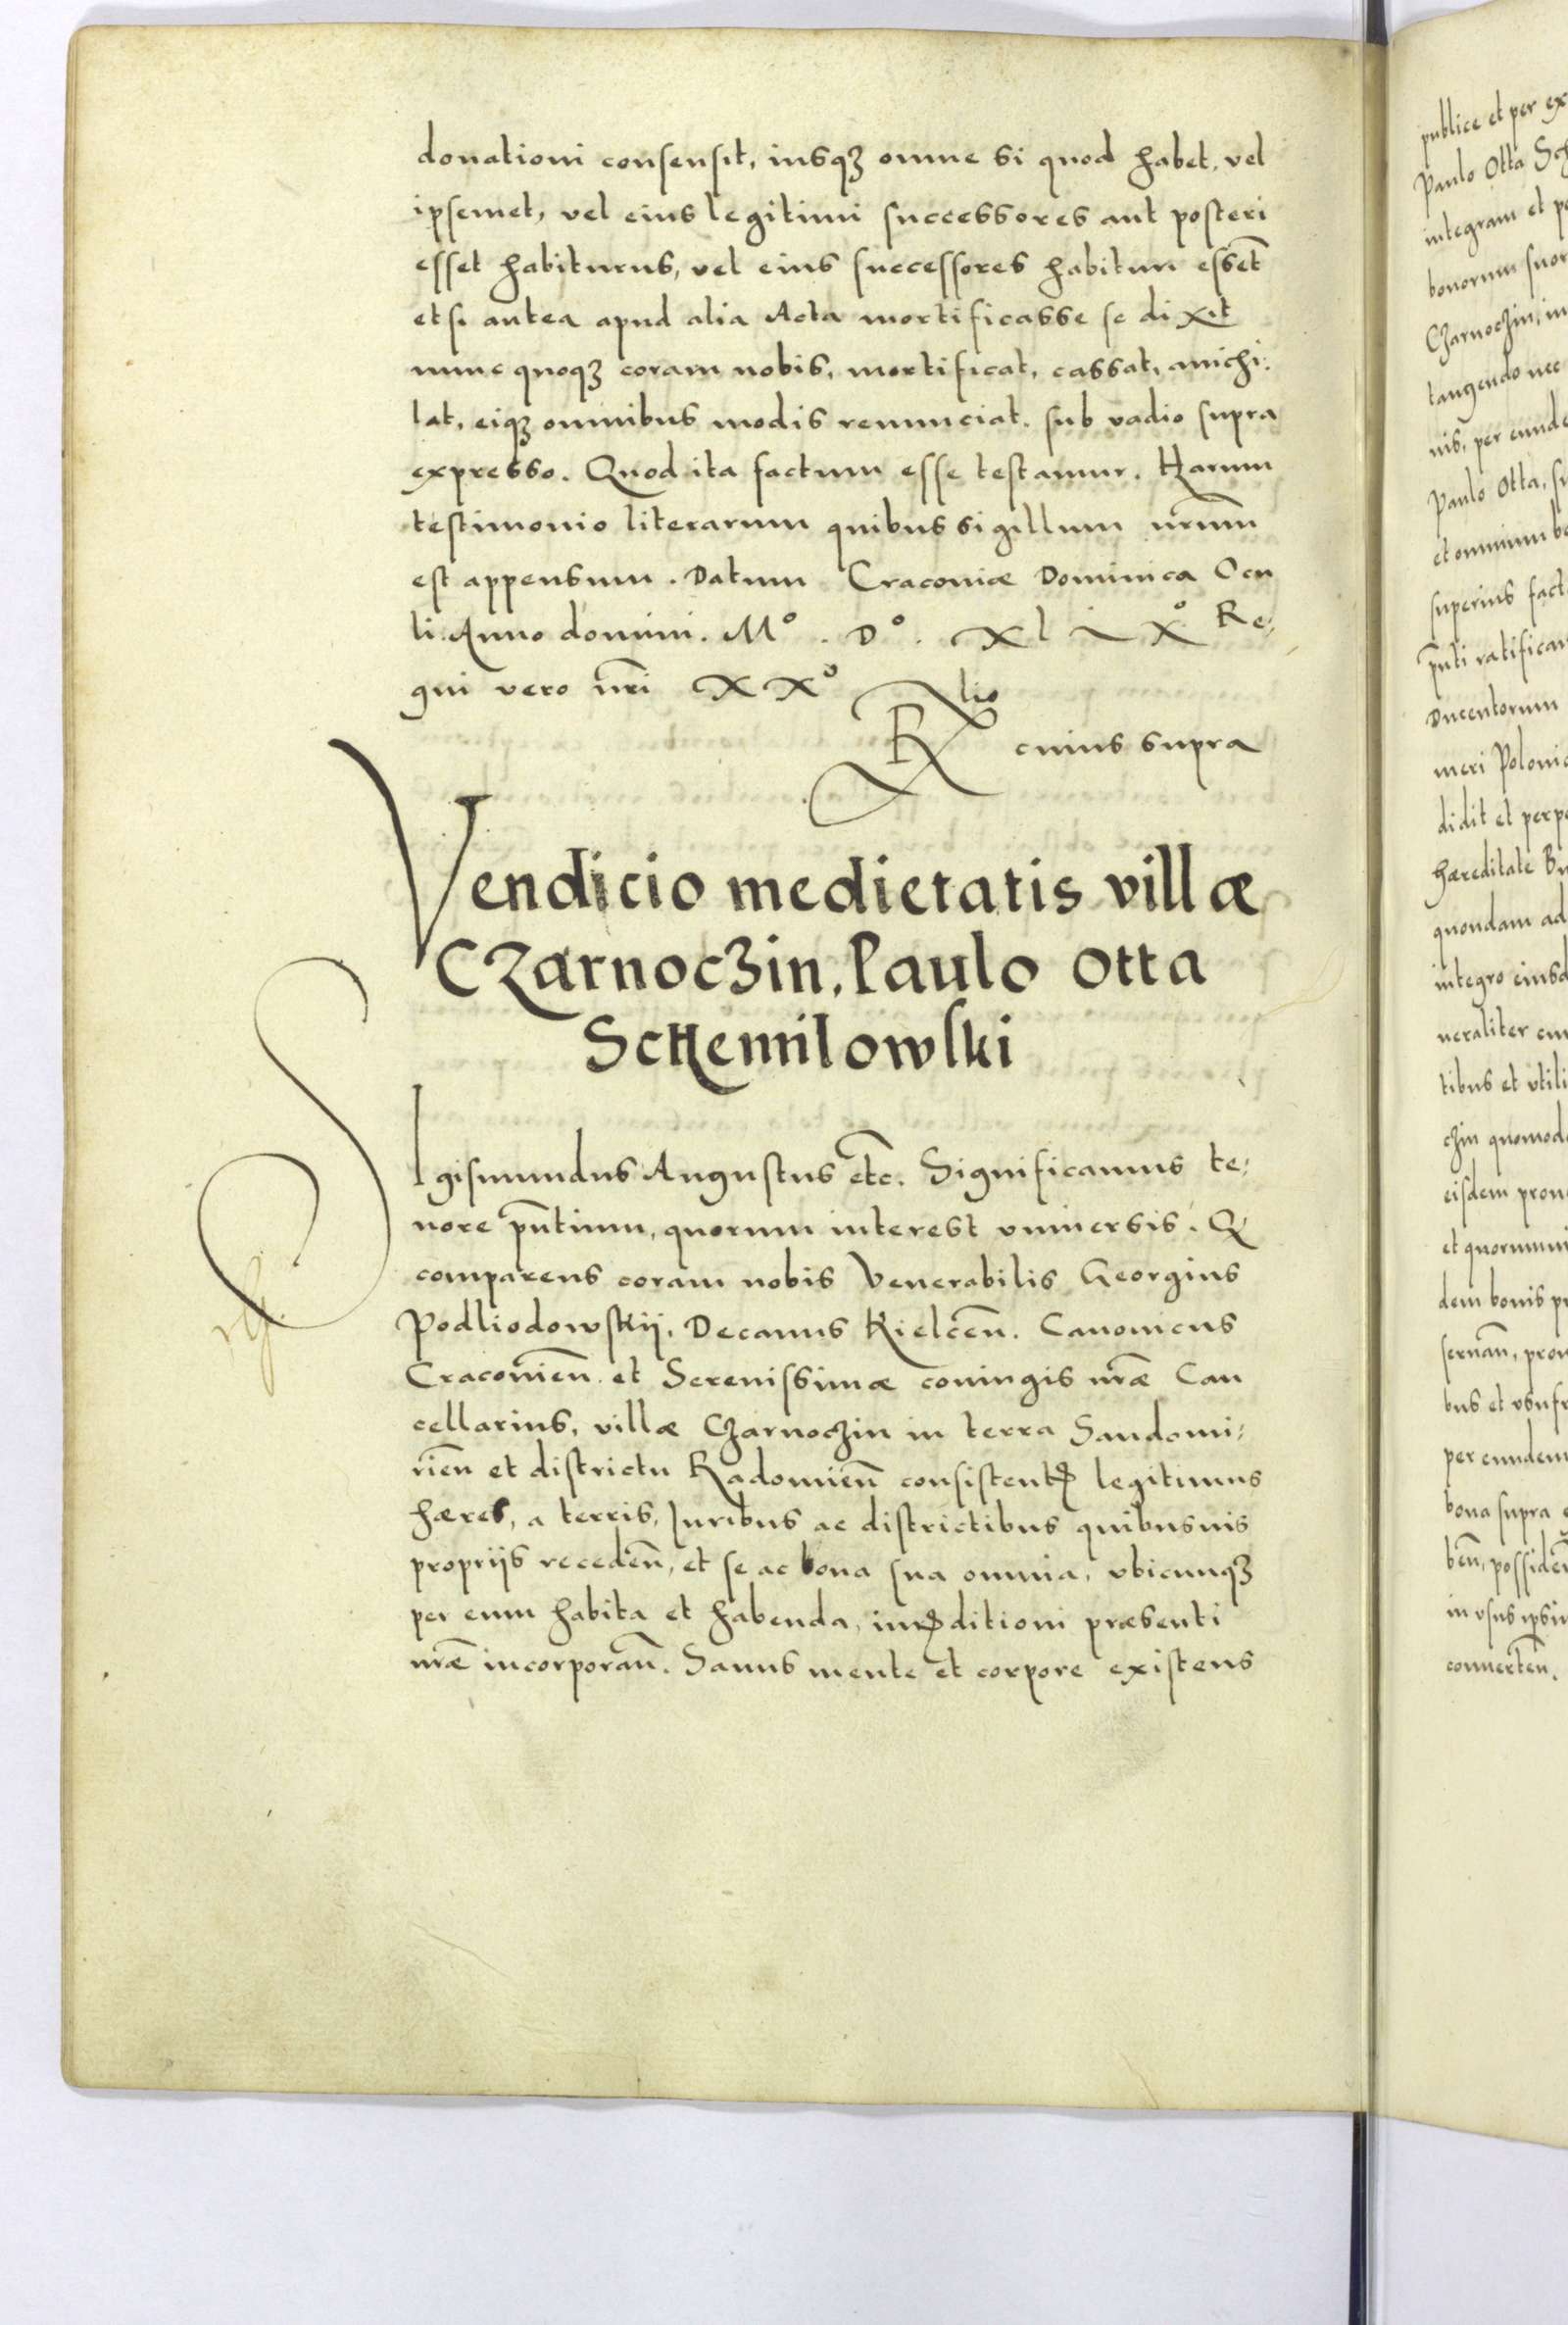 donationi consensit, iusq㝫 omne si quod habet, vel
ipsemet, vel eius legitimi successores aut posteri
esset habiturus, vel eius successores habituri essēt
etsi antea apud alia Acta mortificasse se dixit
nunc quoq㝫 coram nobis, mortificat, cassat, anichi:
lat, eiq㝫 omnibus modis renunciat. sub vadio supra
expresso. Quod ita factum esse testamur. Harum
testimonio literarum quibus sigillum nr̄um
est appensum. Datum Cracoviæ Dominica Ocu
li. Anno domini. Mº. Dº. xlixº Re:
gni vero nr̄i xxº
Rlio cuius supra
Vendicio medietatis villæ
Czarnoczin, Paulo Otta
Schemilowski
SIgismundus Augustus etc. Significamus te:
nore pn̄tium, quorum interest vniversis. Q
comparens coram nobis Venerabilis Georgius
Podliodowskij, Decanus Kielcen̄. Canonicus
Cracovien̄. et Serenissimæ coniugis nr̄æ Can
cellarius, villæ Czarnoczin in terra Sandomi:
rien̄ et districtu Radomien̄ consistentꝭ legitimus
hæres, a terris, Iuribus ac districtibus quibusuis
proprijs receden̄, et se ac bona sua omnia, vbicunq㝫
per eum habita et habenda, iurꝭditioni præsenti
nr̄æ incorporan̄. Sanus mente et corpore existens
publice et per ex
Paulo Otta Sch
integram et pe
bonorum suor
Czarnoczin, in
tangendo nec
nis, per eunde
Paulo Otta, su
et omnium bo
superius fact
pn̄ti ratifican
Ducentorum
meri Polonic
didit et perpe
hæreditate
quondam ad
integro eiusd
neraliter cu
tibus et vtili
czin quomod
eisdem prou
et quorumui
dem bonis pr
seruan̄, prou
bus et vsufr
per eundem
bona supra e
ben̄, possiden̄
in vsus ipsiu
conuerten̄.